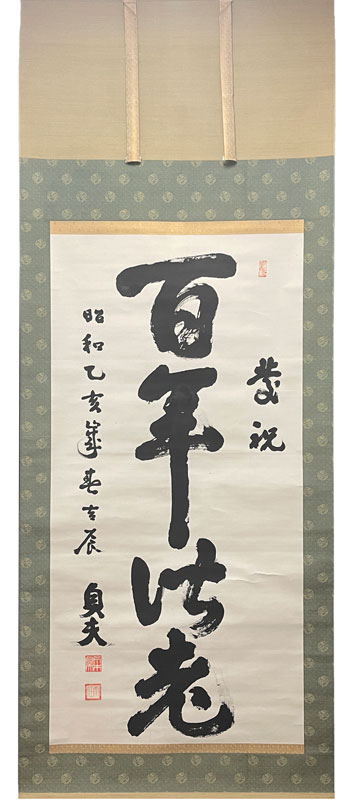 慶祝
百年偕老
昭和乙亥歳春吉辰
貞夫